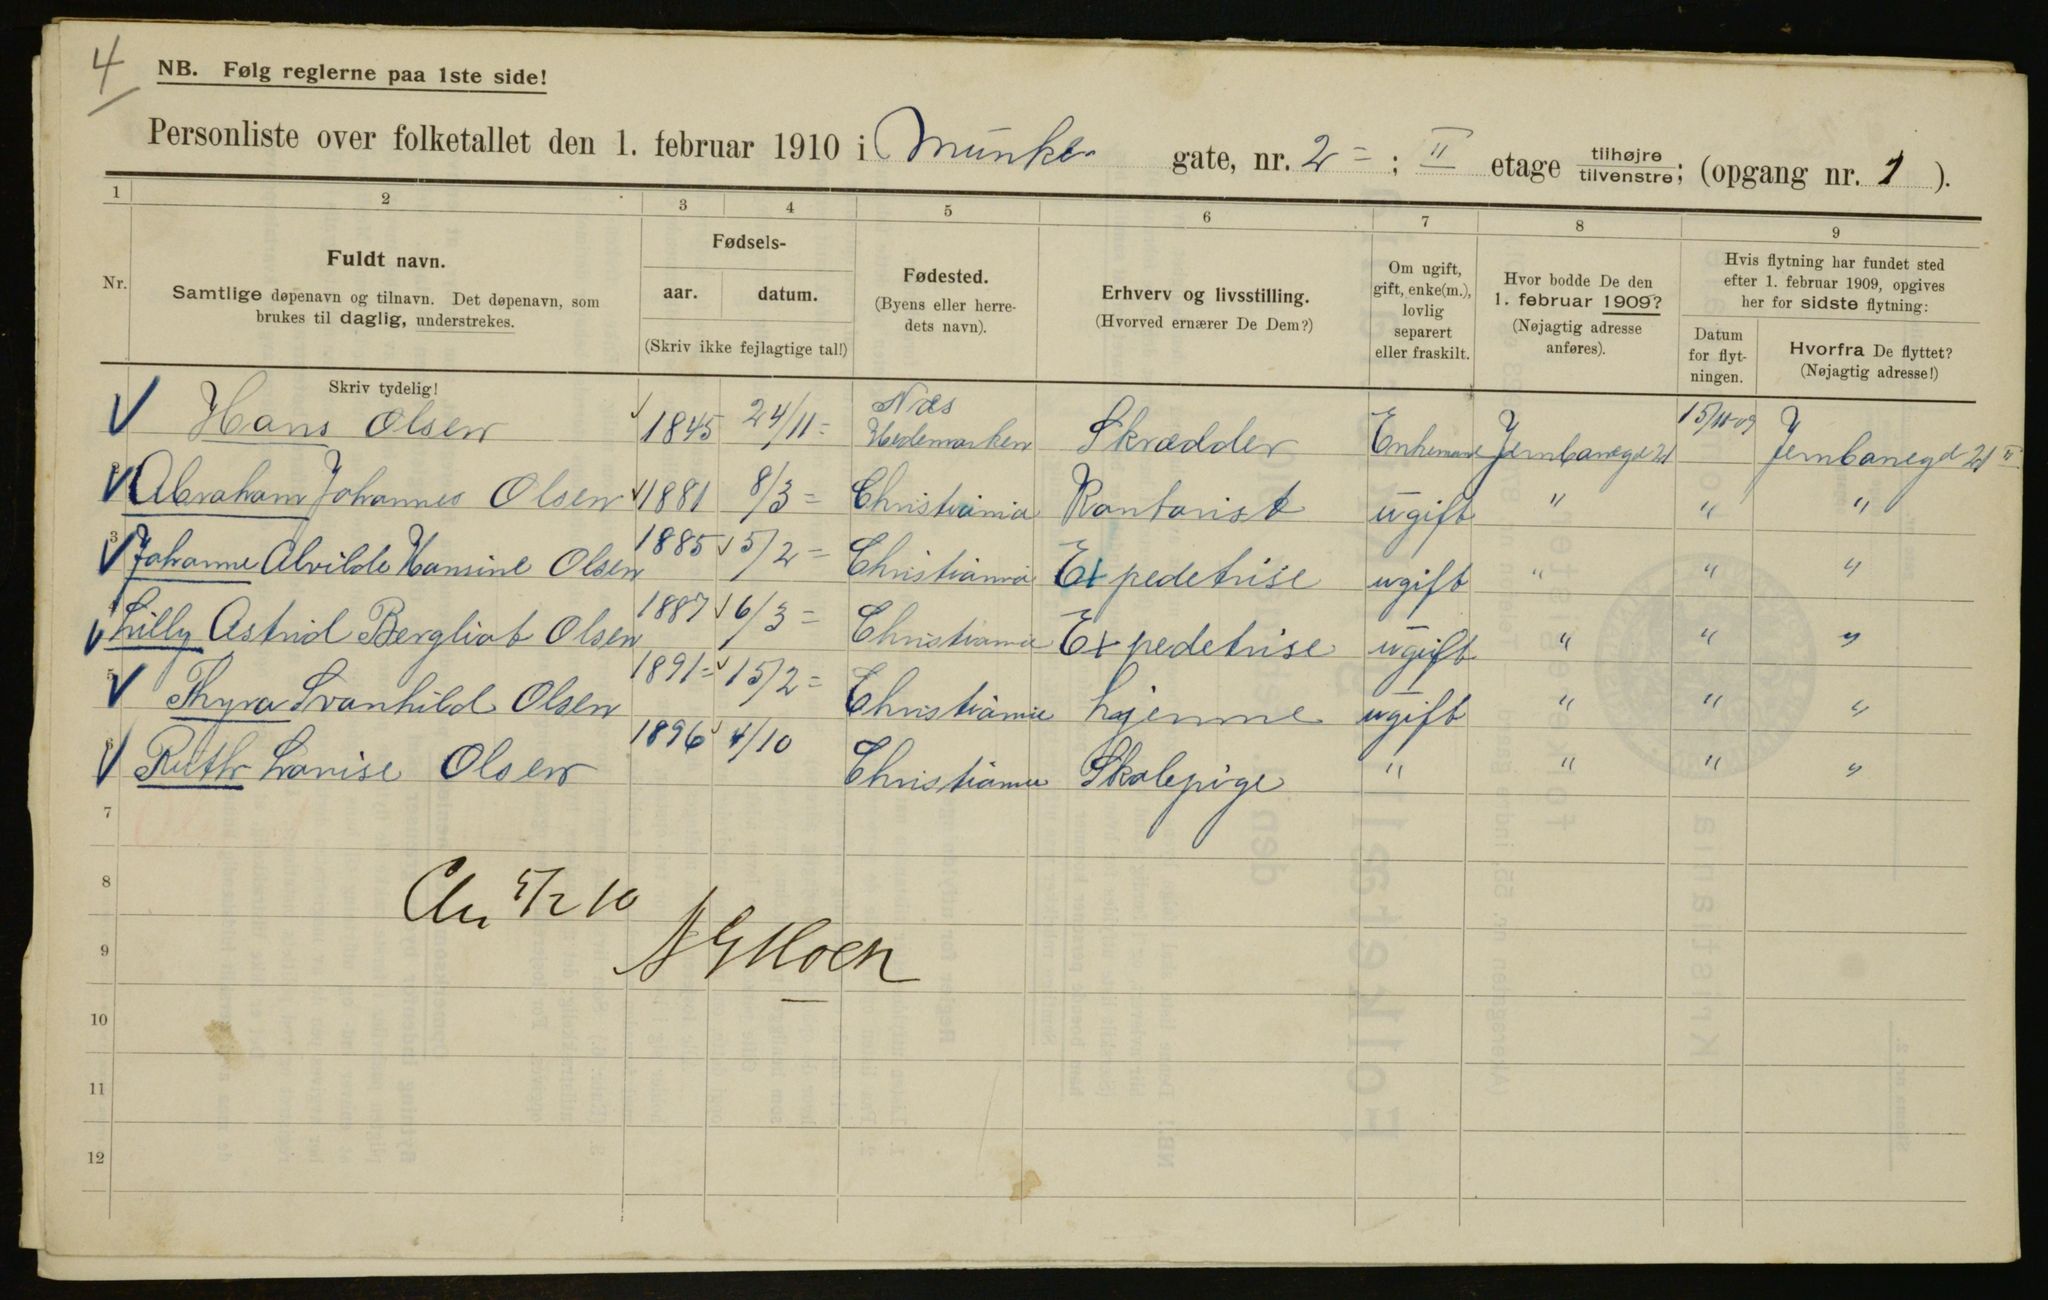 4
NB. Følg reglerne paa 1ste side!
Personliste over folketallet den 1. februar 1910 i Munke gate, nr. 2 = ; II etage tilhøjre tilvenstre; (opgang nr. 1 ).
1 2 3 4 5 6 7 8 9
Nr.
Fuldt navn.
Samtlige døpenavn og tilnavn. Det døpenavn, som
brukes til daglig, understrekes.
Fødsels-
aar. datum.
(Skriv ikke fejlagtige tal!)
Fødested.
(Byens eller herre-
dets navn).
Erhverv og livsstilling.
(Hvorved ernærer De Dem?)
Om ugift,
gift, enke(m.),
lovlig
separert
eller fraskilt.
Hvor bodde De den
1. februar 1909?
(Nøjagtig adresse
anføres).
Hvis flytning har fundet sted
efter 1. februar 1909, opgives
her for sidste flytning:
Datum
for flyt-
ningen.
Hvorfra De flyttet?
(Nøjagtig adresse!)
Skriv tydelig!
Hans Olsen 1845 24/11 = Næs Hedemarken Skrædder Enkemand Jernbanegd 21 15/11-09 Jernbanegd 21 II
Abraham Johannes Olsen 1881 8/3 = Christiania Kontorist ugift " " "
3 Johanne Alvilde Hansine Olsen 1885 5/2 = Christiania Expedetrise ugift " " "
Lilly Astrid Bergliot Olsen 1887 6/3 = Christiania Expedetrise ugift " " "
5 Thyra Svanhild Olsen 1891 = 15/2 = Christiania hjemme ugift " " "
6 Ruth Lovise Olsen 1896 4/10 Christiania Skolepige " " " "
7
8
Chr 5/2 10
9
N G Moen
10
11
12